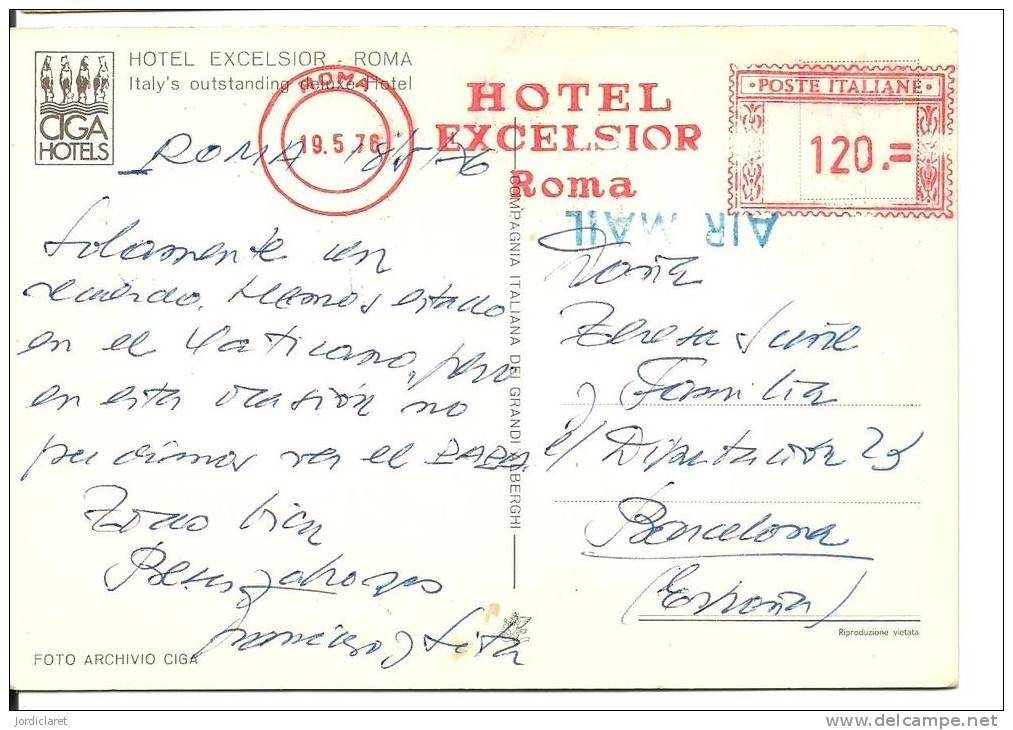 HOTEL EXCELSIOR - ROMA
Italy's outstanding deluxe Hotel
CIGA
HOTELS
ROMA
19.5.76
HOTEL
EXCELSIOR
Roma
POSTE ITALIANE
120.=
AIR MAIL
ROMA 18/5/76
Solamente un
recuerdo. Hemos estado
en el Vaticano, pero
en esta ocasión no
pudimos ver el PAPA.
Todo bien
Besos y abrazos
y Lita
Doña
Teresa Suñe
y Familia
c/ Diputación 25
Barcelona
(España)
COMPAGNIA ITALIANA DEI GRANDI ALBERGHI
Riproduzione vietata
FOTO ARCHIVIO CIGA
jordiclaret
www.delcampe.net